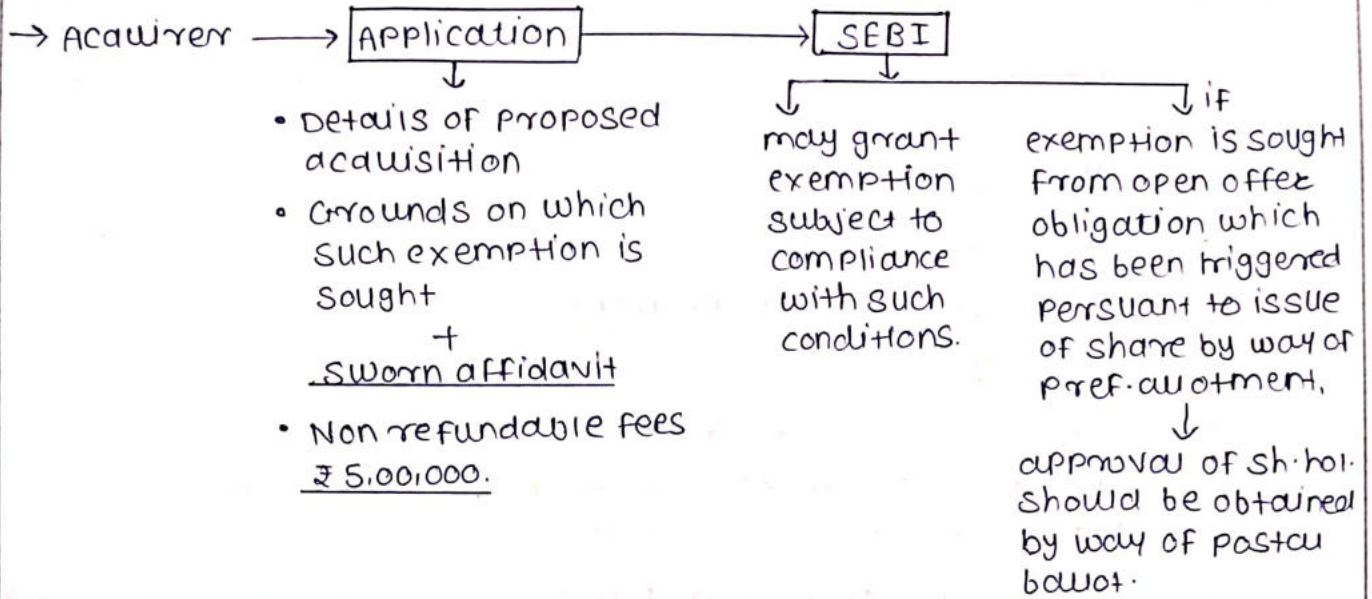 → Acquirer → Application → SEBI
• Details of proposed
acquisition
• Grounds on which
such exemption is
sought
+
sworn affidavit
• Non refundable fees
₹ 5,00,000.
may grant
exemption
subject to
compliance
with such
conditions.
if
exemption is sought
from open offer
obligation which
has been triggered
persuant to issue
of share by way of
pref. allotment.
approval of sh. hol.
should be obtained
by way of postal
ballot.